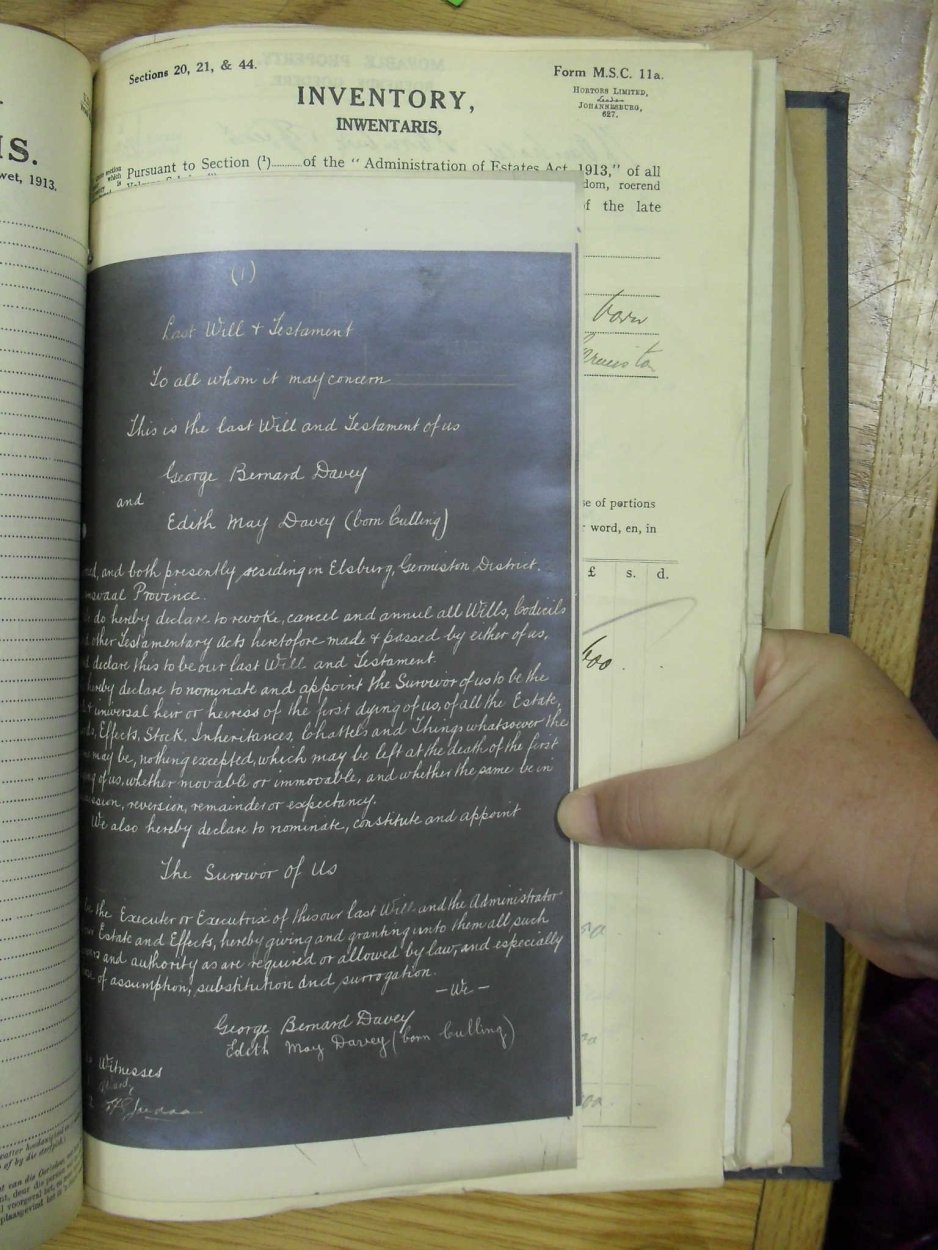 IS.
wet, 1913.
Sections 20, 21, & 44.
Form M.S.C. 11a.
HORTORS LIMITED,
JOHANNESBURG,
627.
INVENTORY,
INWENTARIS,
Pursuant to Section (¹)..........of the "Administration of Estates Act, 1913," of all
dom, roerend
of the late
born
se of portions
r word, en, in
£ s. d.
(1)
Last Will & Testament
To all whom it may concern
This is the last Will and Testament of us
George Bernard Davey
and
Edith May Davey (born Culling)
and both presently residing in Elsburg, Germiston District.
Province.
do hereby declare to revoke, cancel and annul all Wills, Codicils
other Testamentary Acts heretofore made & passed by either of us,
declare this to be our last Will and Testament.
hereby declare to nominate and appoint the Survivor of us to be the
& universal heir or heiress of the first dying of us, of all the Estate,
Effects, Stock, Inheritances, Chattels and Things whatsoever the
may be, nothing excepted, which may be left at the death of the first
of us, whether movable or immovable, and whether the same be in
reversion, remainder or expectancy.
We also hereby declare to nominate, constitute and appoint
The Survivor of Us
the Executer or Executrix of this our last Will and the Administrator
Estate and Effects, hereby giving and granting unto them all such
and authority as are required or allowed by law, and especially
of assumption, substitution and surrogation.
- We -
George Bernard Davey
Edith May Davey (born Culling)
Witnesses